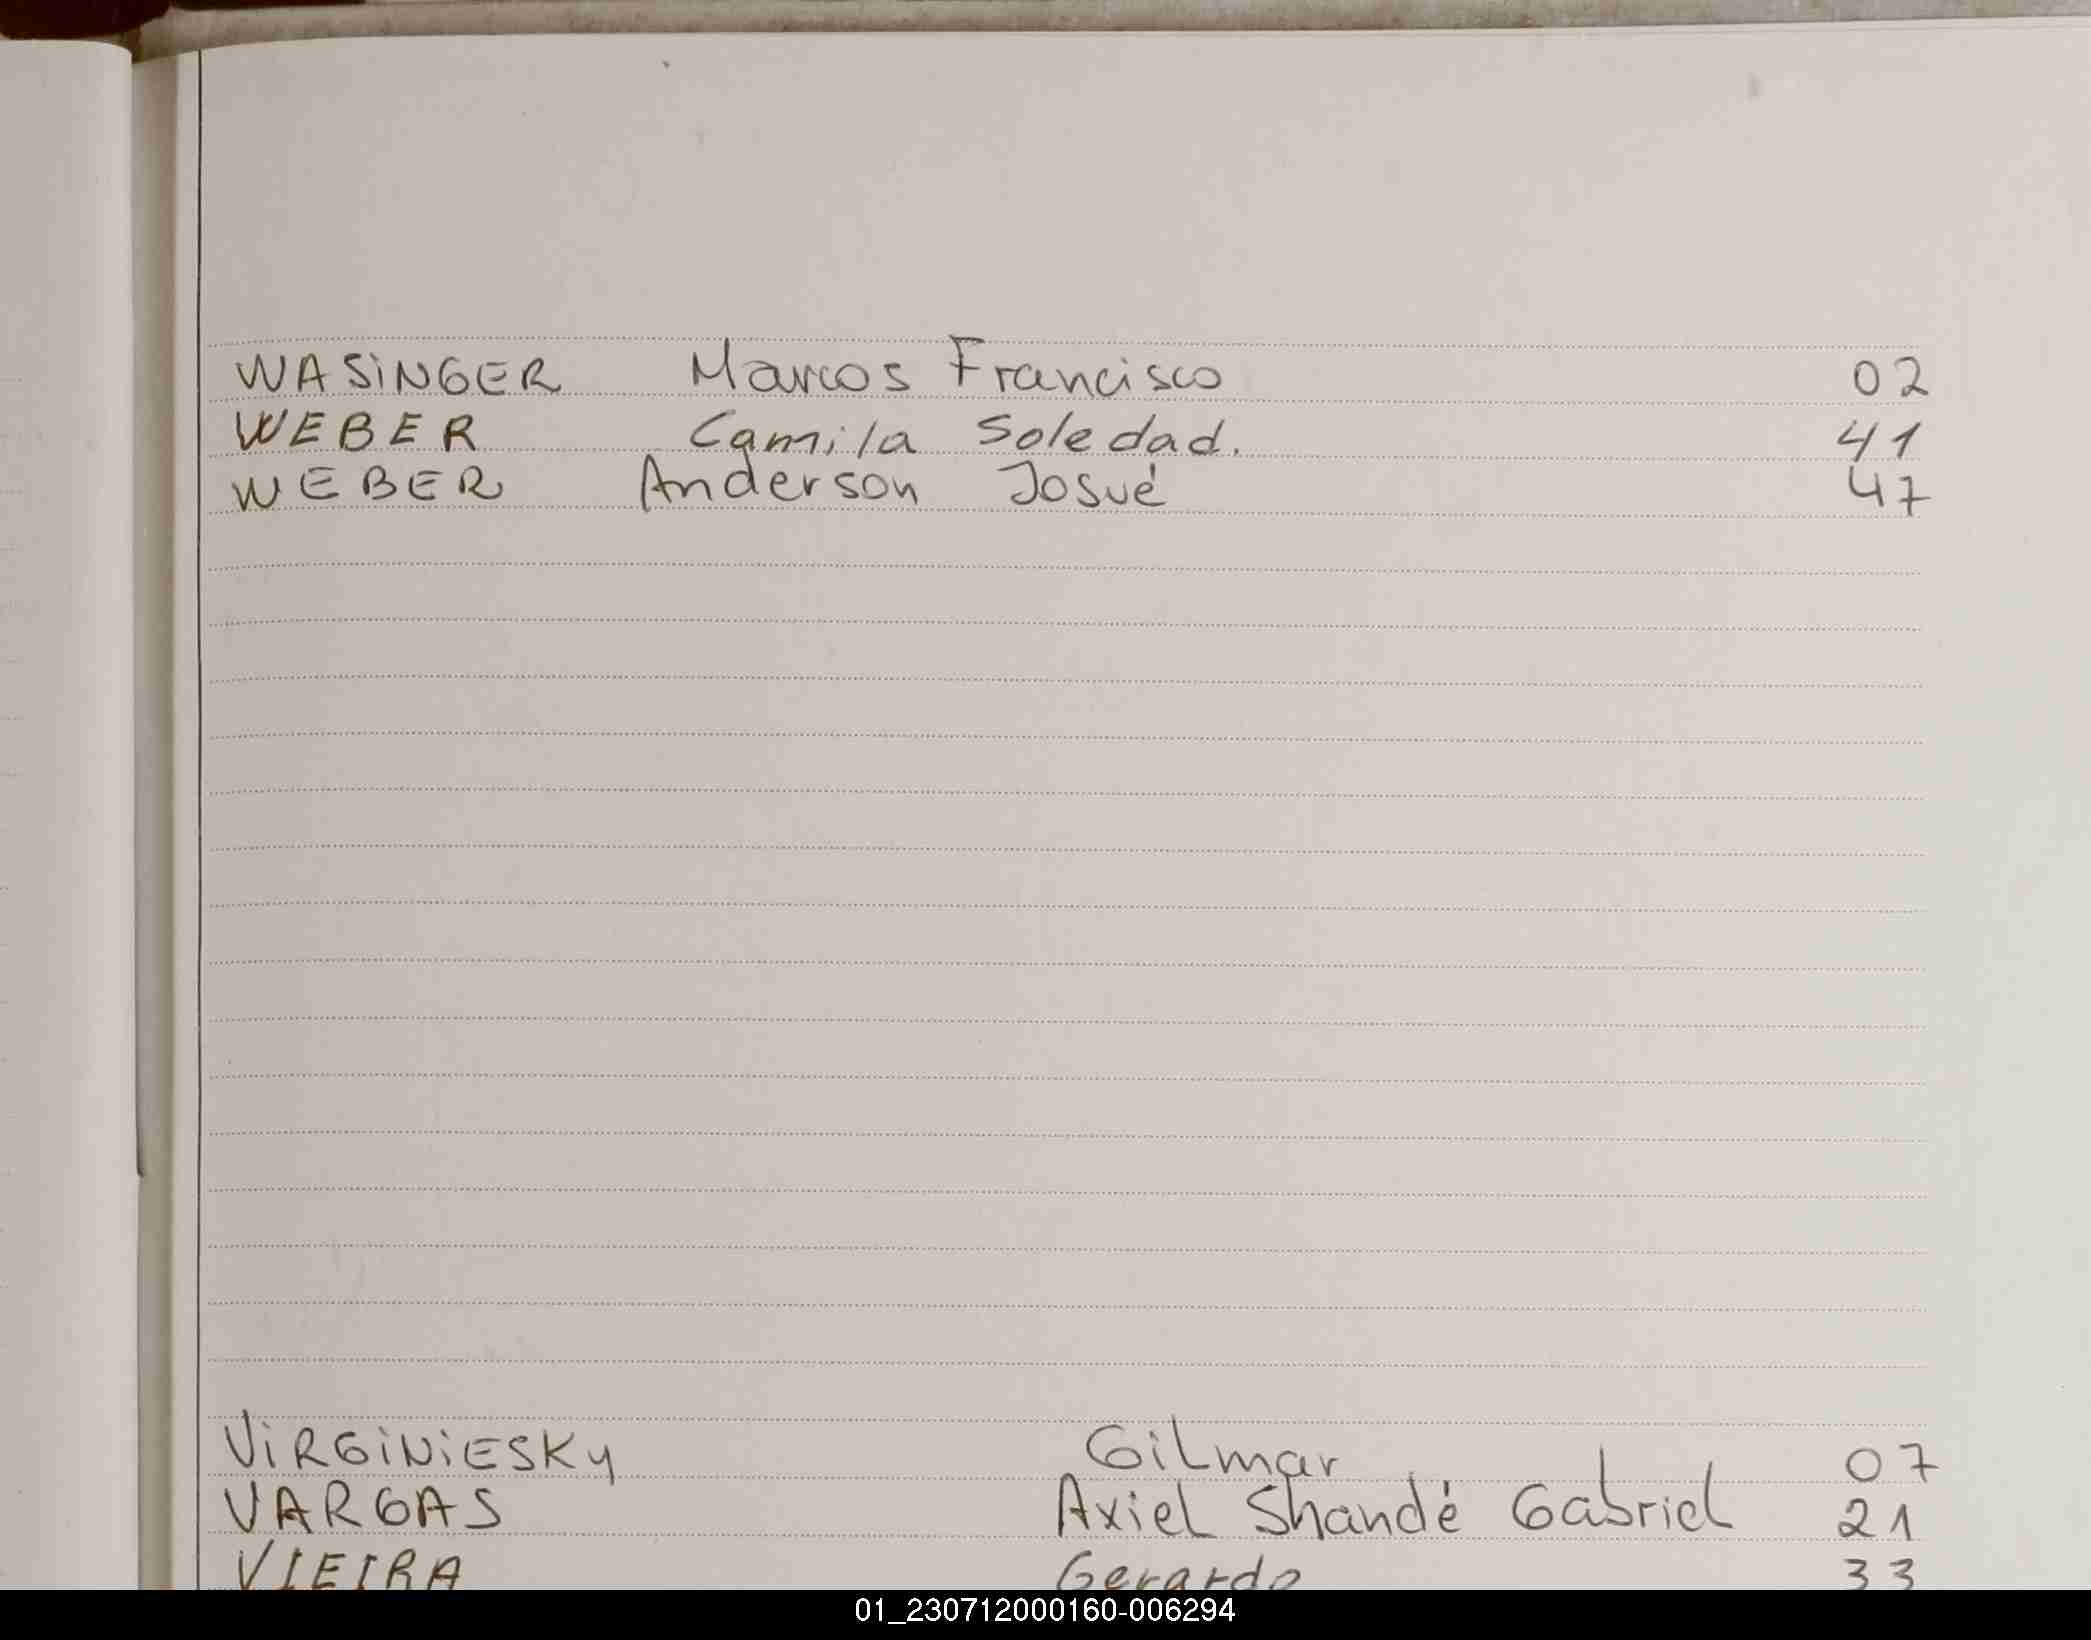 WASiNGER Marcos Francisco 02
WEBER Camila Soledad. 41
WEBER Anderson Josué 47
ViRGiNiESKy Gilmar 07
VARGAS Axiel Shandé Gabriel 21
VIEIRA Gerardo 33
01_230712000160-006294